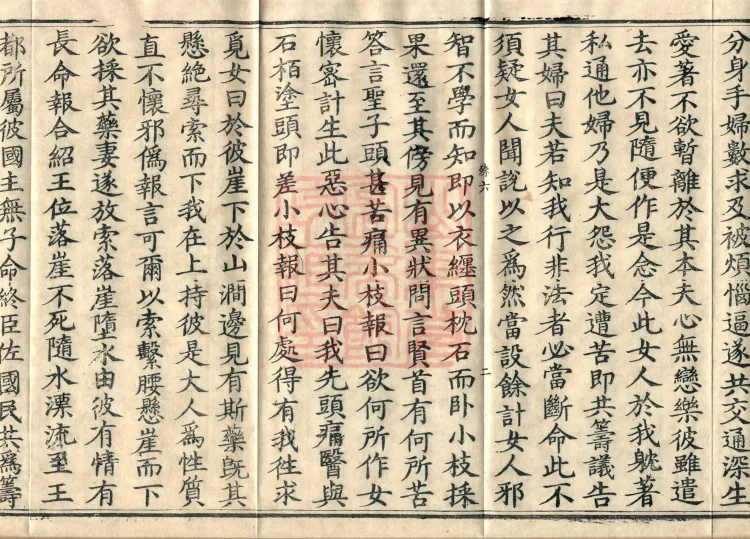 分身手婦數求及被煩惱逼遂共交通深生
愛著不欲暫離於其本夫心無戀樂彼雖遣
去亦不見隨便作是念今此女人於我躭著
私通他婦乃是大怨我定遭苦即共籌議告
其婦曰夫若知我行非法者必當斷命此不
須疑女人聞說以之爲然當設餘計女人邪
二
智不學而知即以衣纏頭枕石而卧小枝採
果還至其傍見有異狀問言賢首有何所苦
答言聖子頭甚苦痛小枝報曰欲何所作女
懷密計生此惡心告其夫曰我先頭痛醫與
石栢塗頭即差小枝報曰何處得有我徃求
覓女曰於彼崖下於山澗邊見有斯藥旣其
懸絶尋索而下我在上持彼是大人爲性質
直不懷邪僞報言可爾以索繫腰懸崖而下
欲採其藥妻遂放索落崖隨水由彼有情有
長命報合紹王位落崖不死隨水漂流至王
都所屬彼國主無子命終臣佐國民共爲籌